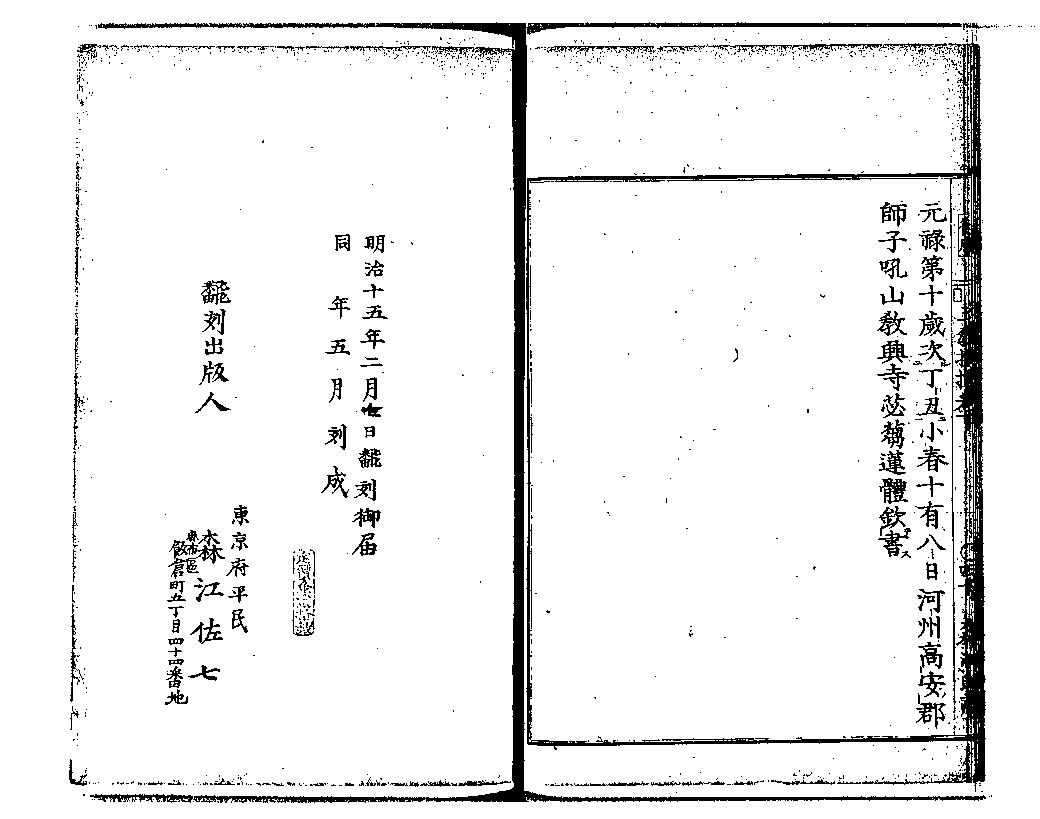 元祿第十歲次丁丑小春十有八日河州高安郡
師子吼山敎興寺苾蒭蓮體欽書
明治十五年二月 日飜刻御届
同年五月刻成
飜刻出版人
東京府平民
森江佐七
麻布區
飯倉町五丁目四十四番地